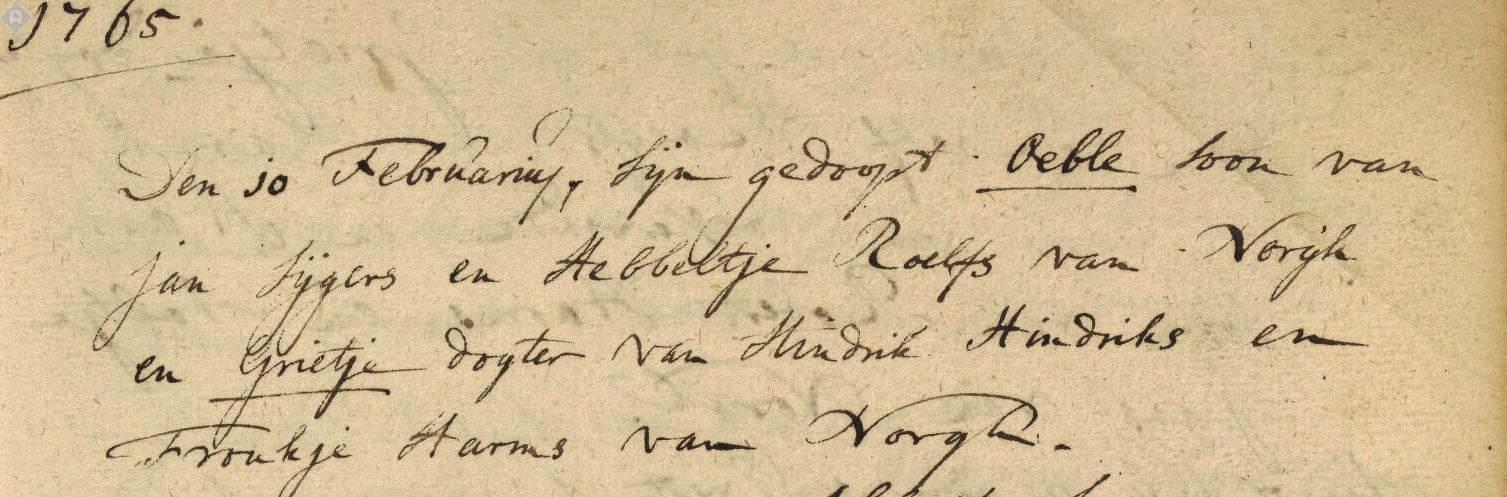 1765.
Den 10 Februarius, sijn gedoopt Oeble soon van
jan sijgers en Hebbeltje Roelfs van Norgh
en Grietje dogter van Hindrik Hindriks en
Froukje Harms van Norgh.